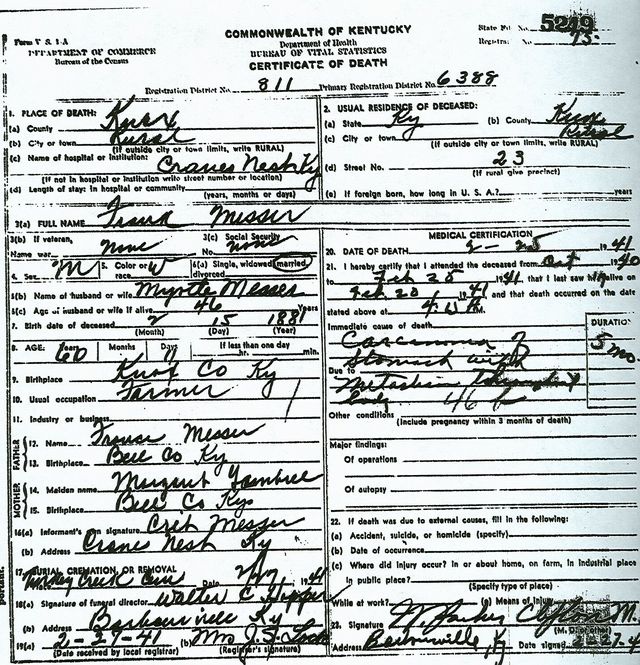 Form V. S. 1-A
DEPARTMENT OF COMMERCE
Bureau of the Census
COMMONWEALTH OF KENTUCKY
Department of Health
BUREAU OF VITAL STATISTICS
CERTIFICATE OF DEATH
State File No. 5249
Registrar No. 75
Registration District No. 811 Primary Registration District No. 6388
1. PLACE OF DEATH:
(a) County Knox
(b) City or town Rural
(If outside city or town limits, write RURAL)
(c) Name of hospital or institution:
Cranes Nest Ky
(If not in hospital or institution write street number or location)
(d) Length of stay: in hospital or community
(years, months or days)
2. USUAL RESIDENCE OF DECEASED:
(a) State Ky (b) County Knox
(c) City or town Rural
(If outside city or town limits, write RURAL)
(d) Street No. 23
(If rural give precinct)
(e) If foreign born, how long in U. S. A.? years
3(a) FULL NAME Frank Messer
3(b) If veteran, 3(c) Social Security
Name war None No. none
4. Sex M 5. Color or race W 6(a) Single, widowed, married, divorced
6(b) Name of husband or wife Myrtle Messer
6(c) Age of husband or wife if alive 46 Years
7. Birth date of deceased 2 15 1881
(Month) (Day) (Year)
8. AGE: Years 60 Months Days 11 If less than one day
hr. min.
9. Birthplace Knox Co Ky
10. Usual occupation Farmer
11. Industry or business
FATHER
12. Name Messer
13. Birthplace Bell Co Ky
MOTHER
14. Maiden name Margaret
15. Birthplace Bell Co Ky
16(a) Informant's own signature Messer
(b) Address Crane Nest Ky
17. BURIAL, CREMATION, OR REMOVAL
Turkey Creek Cem Date 2/27 1941
18(a) Signature of funeral director Walter C Hopper
(b) Address Barbourville Ky
19(a) 2-27-41 (b) Mrs J.
(Date received by local registrar) (Registrar's signature)
MEDICAL CERTIFICATION
20. DATE OF DEATH 2-25 1941
21. I hereby certify that I attended the deceased from Oct 1940
to Feb 25 1941, that I last saw h alive on
Feb 1941 and that death occurred on the date
stated above at 4: M.
Immediate cause of death DURATION
Carcinoma of 5 mo
Stomach with
Due to
body 46 f
Other conditions
(Include pregnancy within 3 months of death)
Major findings:
Of operations
Of autopsy
22. If death was due to external causes, fill in the following:
(a) Accident, suicide, or homicide (specify)
(b) Date of occurrence
(c) Where did injury occur? In or about home, on farm, in industrial place
in public place?
(Specify type of place)
While at work? (e) Means of injury
23. Signature
(M. D. or other)
Address Barbourville Ky Date signed 2-27-4